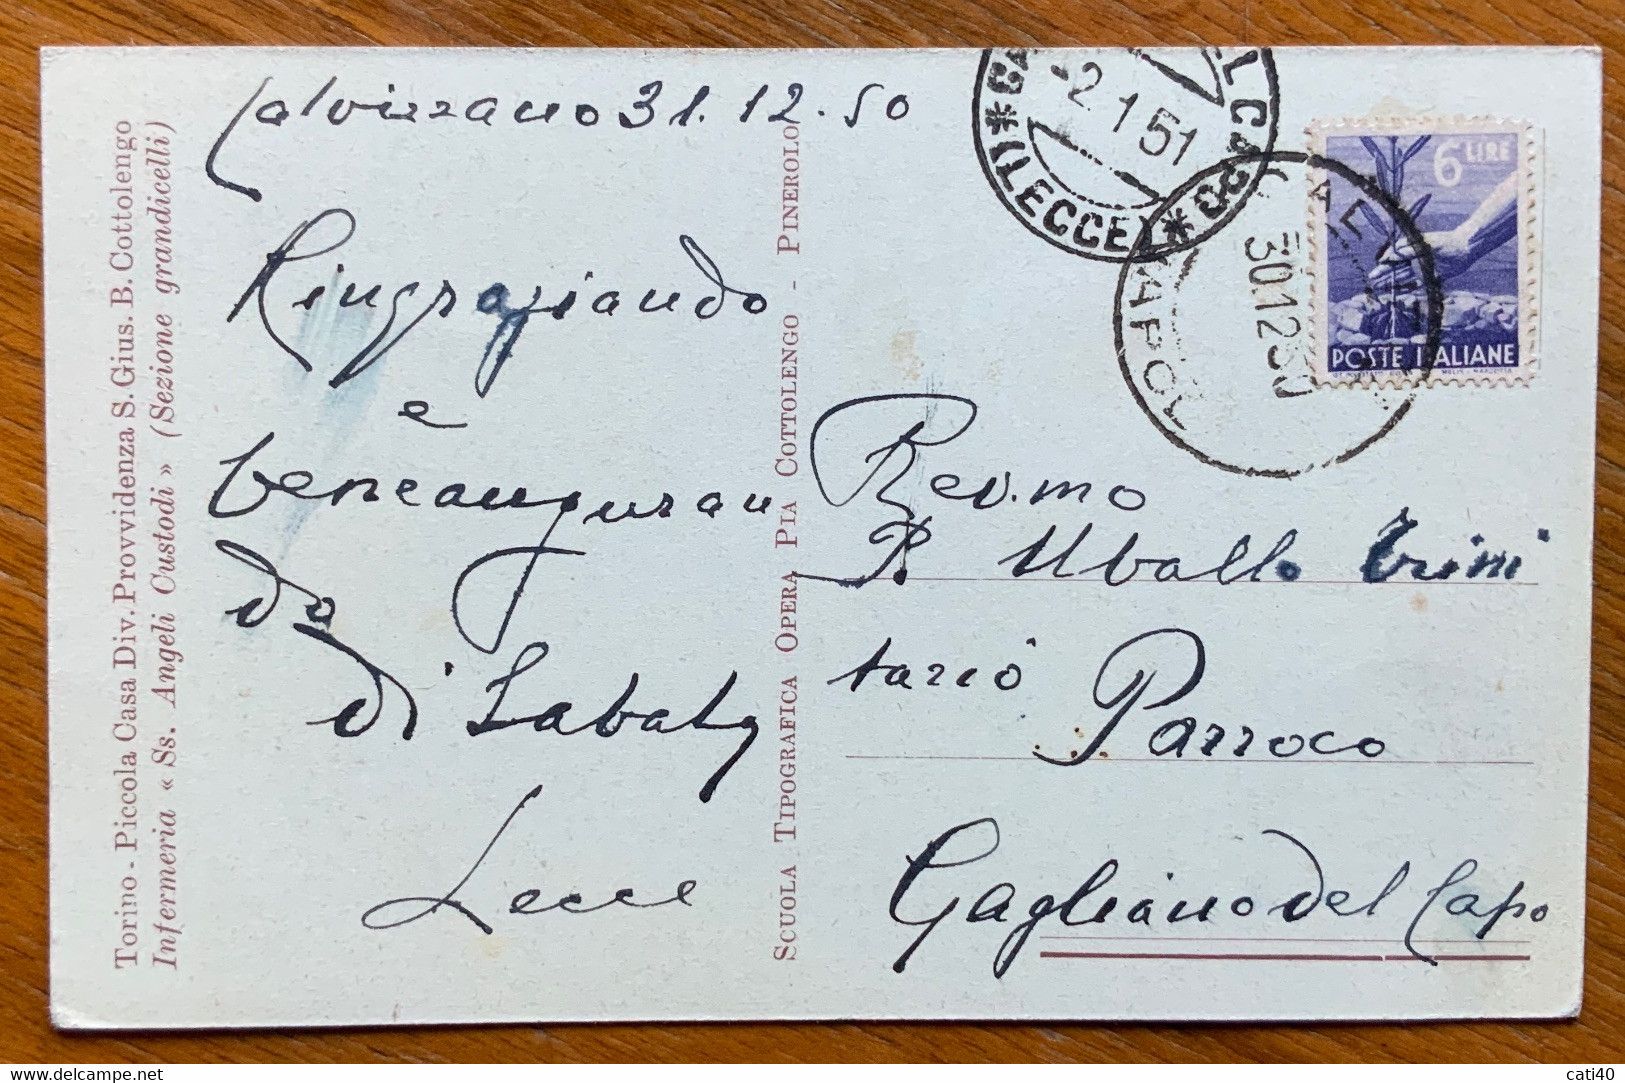 Torino - Piccola Casa Div. Provvidenza S. Gius. B. Cottolengo
Infermeria « Ss. Angeli Custodi » (Sezione grandicelli)
Calvizzano 31.12.50
Ringraziando
e
beneauguran
do
Di Sabato
Lecce
SCUOLA TIPOGRAFICA OPERA PIA COTTOLENGO - PINEROLO
*(LECCE)*
-2.1 51
30.12 50
6 LIRE
POSTE ITALIANE
Rev.mo
P. Uballo Trini
tario Parroco
Gagliano del Capo
cati40